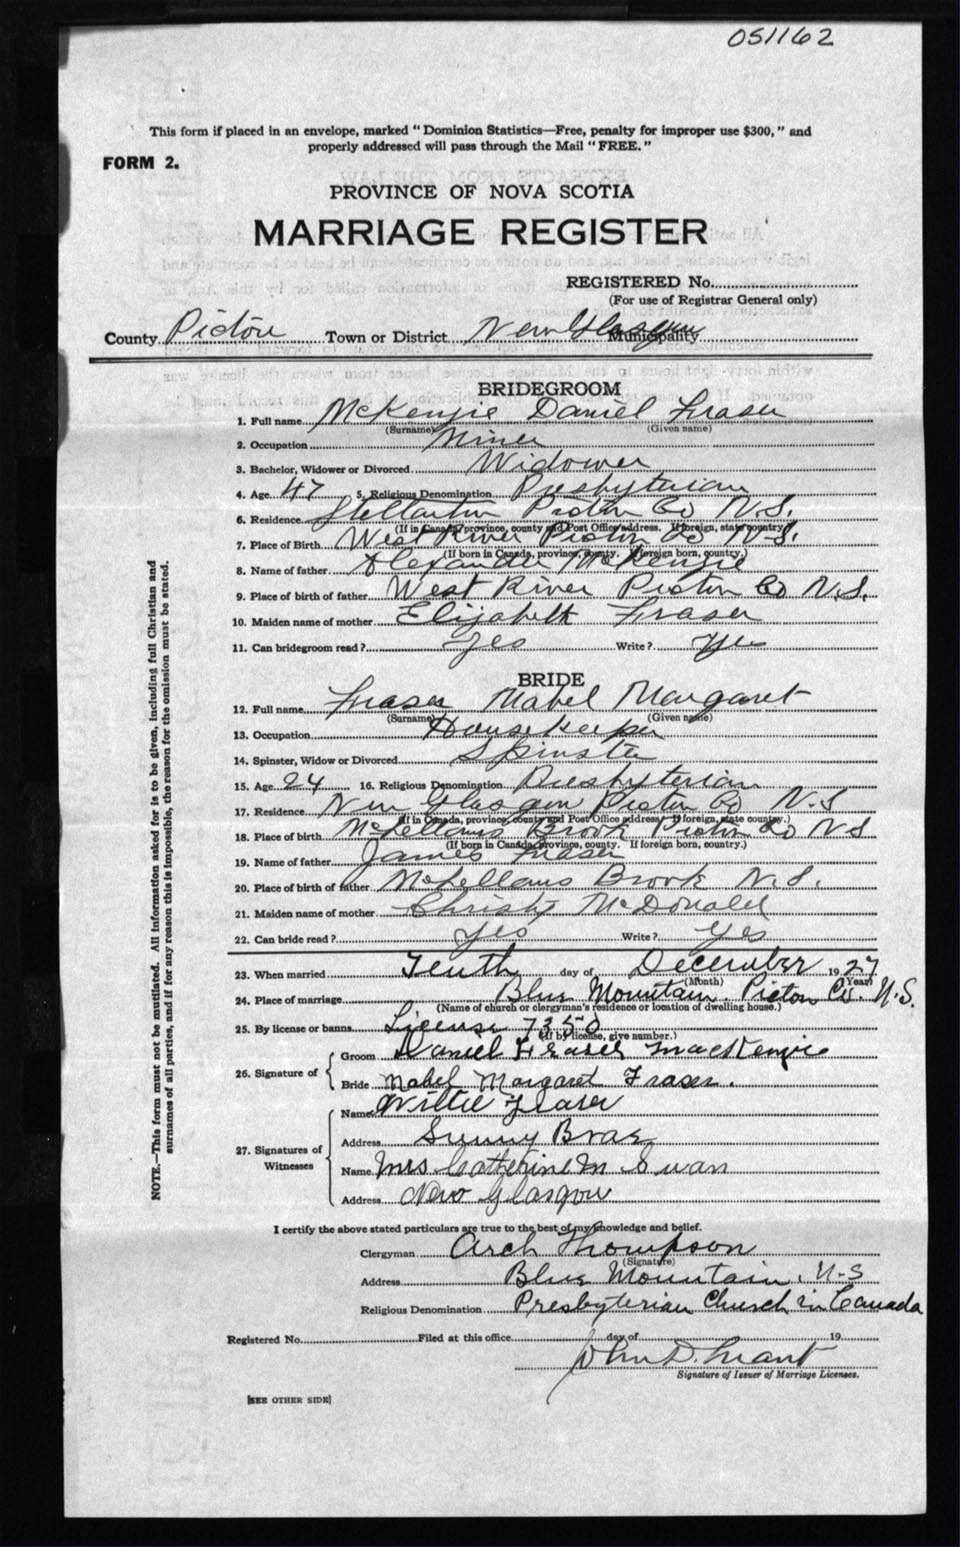 051162
This form if placed in an envelope, marked "Dominion Statistics—Free, penalty for improper use $300," and
properly addressed will pass through the Mail "FREE."
FORM 2.
PROVINCE OF NOVA SCOTIA
MARRIAGE REGISTER
REGISTERED No.
(For use of Registrar General only)
County Pictou Town or District New Glasgow Municipality
BRIDEGROOM
1. Full name McKenzie Daniel Fraser
(Surname) (Given name)
2. Occupation Miner
3. Bachelor, Widower or Divorced Widower
4. Age 47 5. Religious Denomination Presbyterian
6. Residence Stellarton Pictou Co N.S.
(If in Canada, province, county and Post Office address. If foreign, state country)
7. Place of Birth West River Pictou Co N.S.
(If born in Canada, province, county. If foreign born, country.)
8. Name of father Alexander McKenzie
9. Place of birth of father West River Pictou Co N.S.
10. Maiden name of mother Elizabeth Fraser
11. Can bridegroom read? Yes Write? Yes
BRIDE
12. Full name Fraser Mabel Margaret
(Surname) (Given name)
13. Occupation Housekeeper
14. Spinster, Widow or Divorced Spinster
15. Age 24 16. Religious Denomination Presbyterian
17. Residence New Glasgow Pictou Co N.S
(If in Canada, province, county and Post Office address. If foreign, state country.)
18. Place of birth McLellans Brook Pictou Co N S
(If born in Canada, province, county. If foreign born, country.)
19. Name of father James Fraser
20. Place of birth of father McLellans Brook N.S.
21. Maiden name of mother Christy McDonald
22. Can bride read? Yes Write? Yes
23. When married Tenth day of December 1927
(Month) (Year)
24. Place of marriage Blue Mountain Pictou Co. N.S.
(Name of church or clergyman's residence or location of dwelling house.)
25. By license or banns License 7350
(If by license, give number.)
26. Signature of Groom Daniel Fraser MacKenzie
Bride Mabel Margaret Fraser.
27. Signatures of Witnesses
Name Willie Fraser
Address Sunny Brae
Name Mrs Catherine M Swan
Address New Glasgow
I certify the above stated particulars are true to the best of my knowledge and belief.
Clergyman Arch Thompson
(Signature)
Address Blue Mountain, N.S
Religious Denomination Presbyterian Church in Canada
Registered No. Filed at this office day of 19
John D. Grant
Signature of Issuer of Marriage Licenses.
[SEE OTHER SIDE]
NOTE.—This form must not be mutilated. All information asked for is to be given, including full Christian and
surnames of all parties, and if for any reason this is impossible, the reason for the omission must be stated.